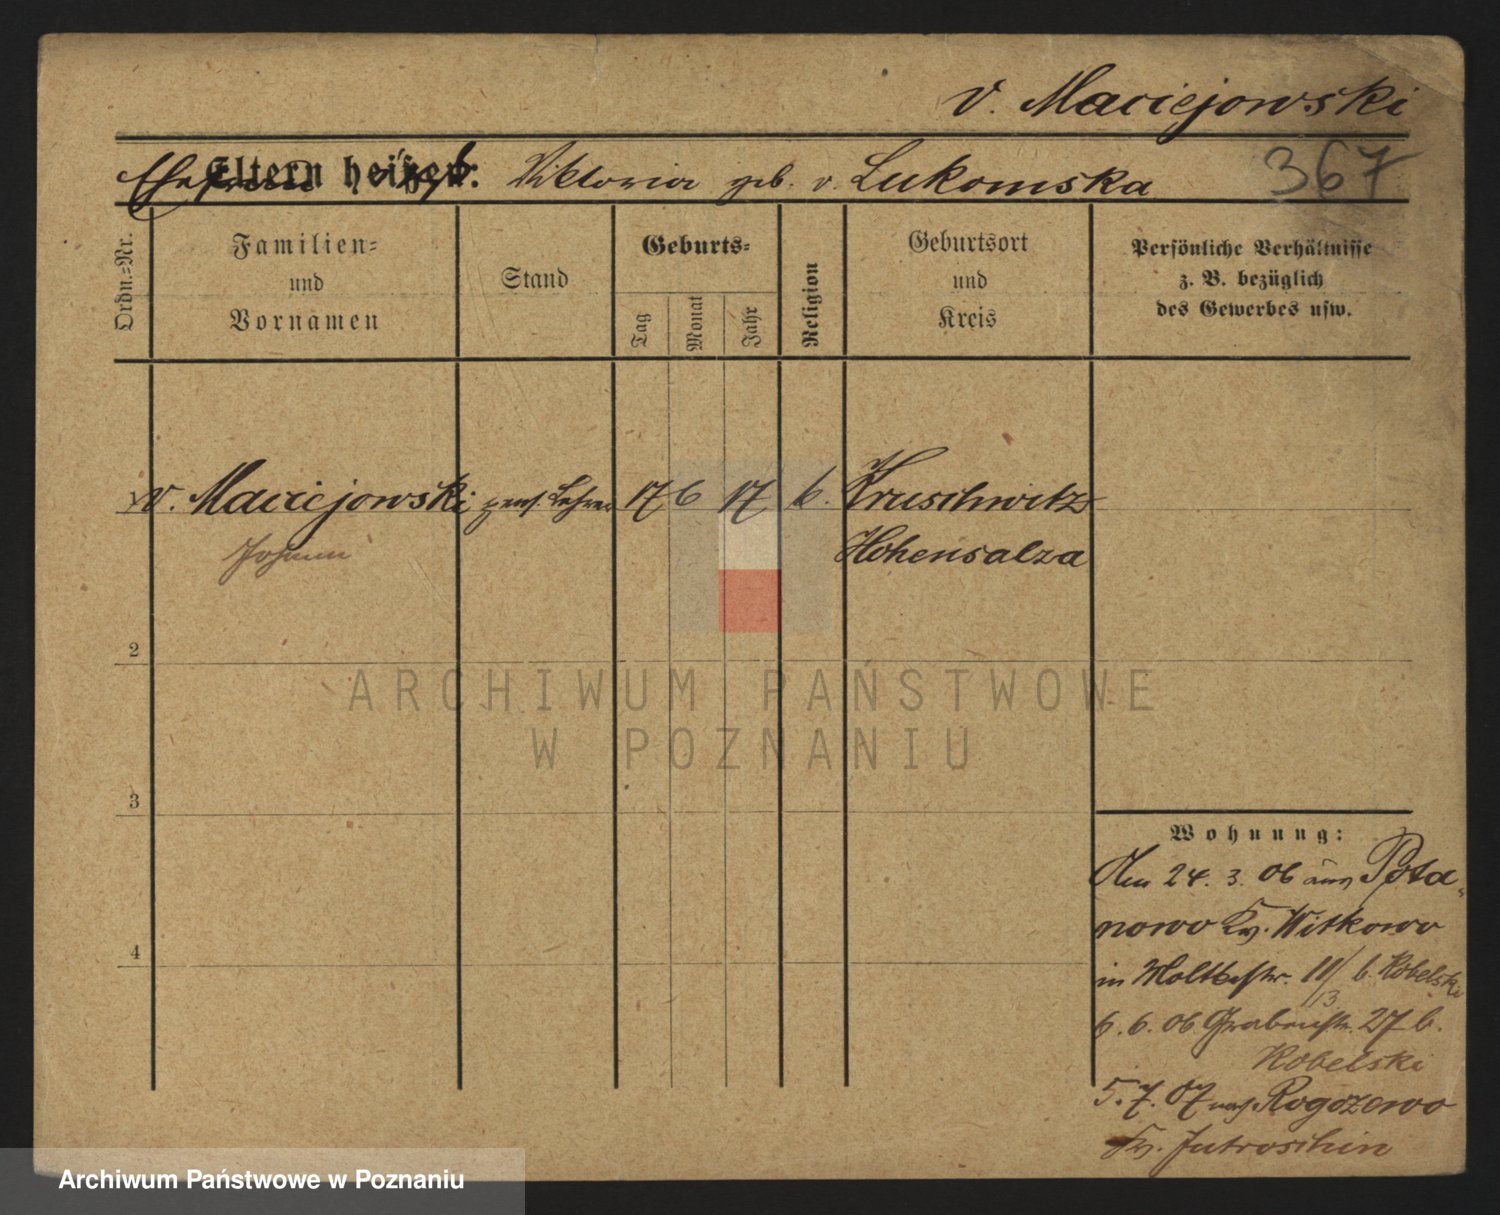 v. Maciejowski
367
Eltern heißen: Viktoria geb. v. Lukomska
Ordn.-Nr.
Familien-
und
Vornamen
Stand
Geburts-
Tag
Monat
Jahr
Religion
Geburtsort
und
Kreis
Persönliche Verhältnisse
z. B. bezüglich
des Gewerbes usw.
v. Maciejowski pens. Lehrer 17 6 17 k. Kruschwitz
Johann Hohensalza
2
3
4
Wohnung:
Am 24. 3. 06 aus Pota-
nowo Kr. Witkowo
in Moltkestr. 11/13 b. Kobelski
6. 6. 06 Grabenstr. 27 b.
Kobelski
5. 7. 07 nach Rogozewo
Kr. Jutroschin
ARCHIWUM PAŃSTWOWE
W POZNANIU
Archiwum Państwowe w Poznaniu